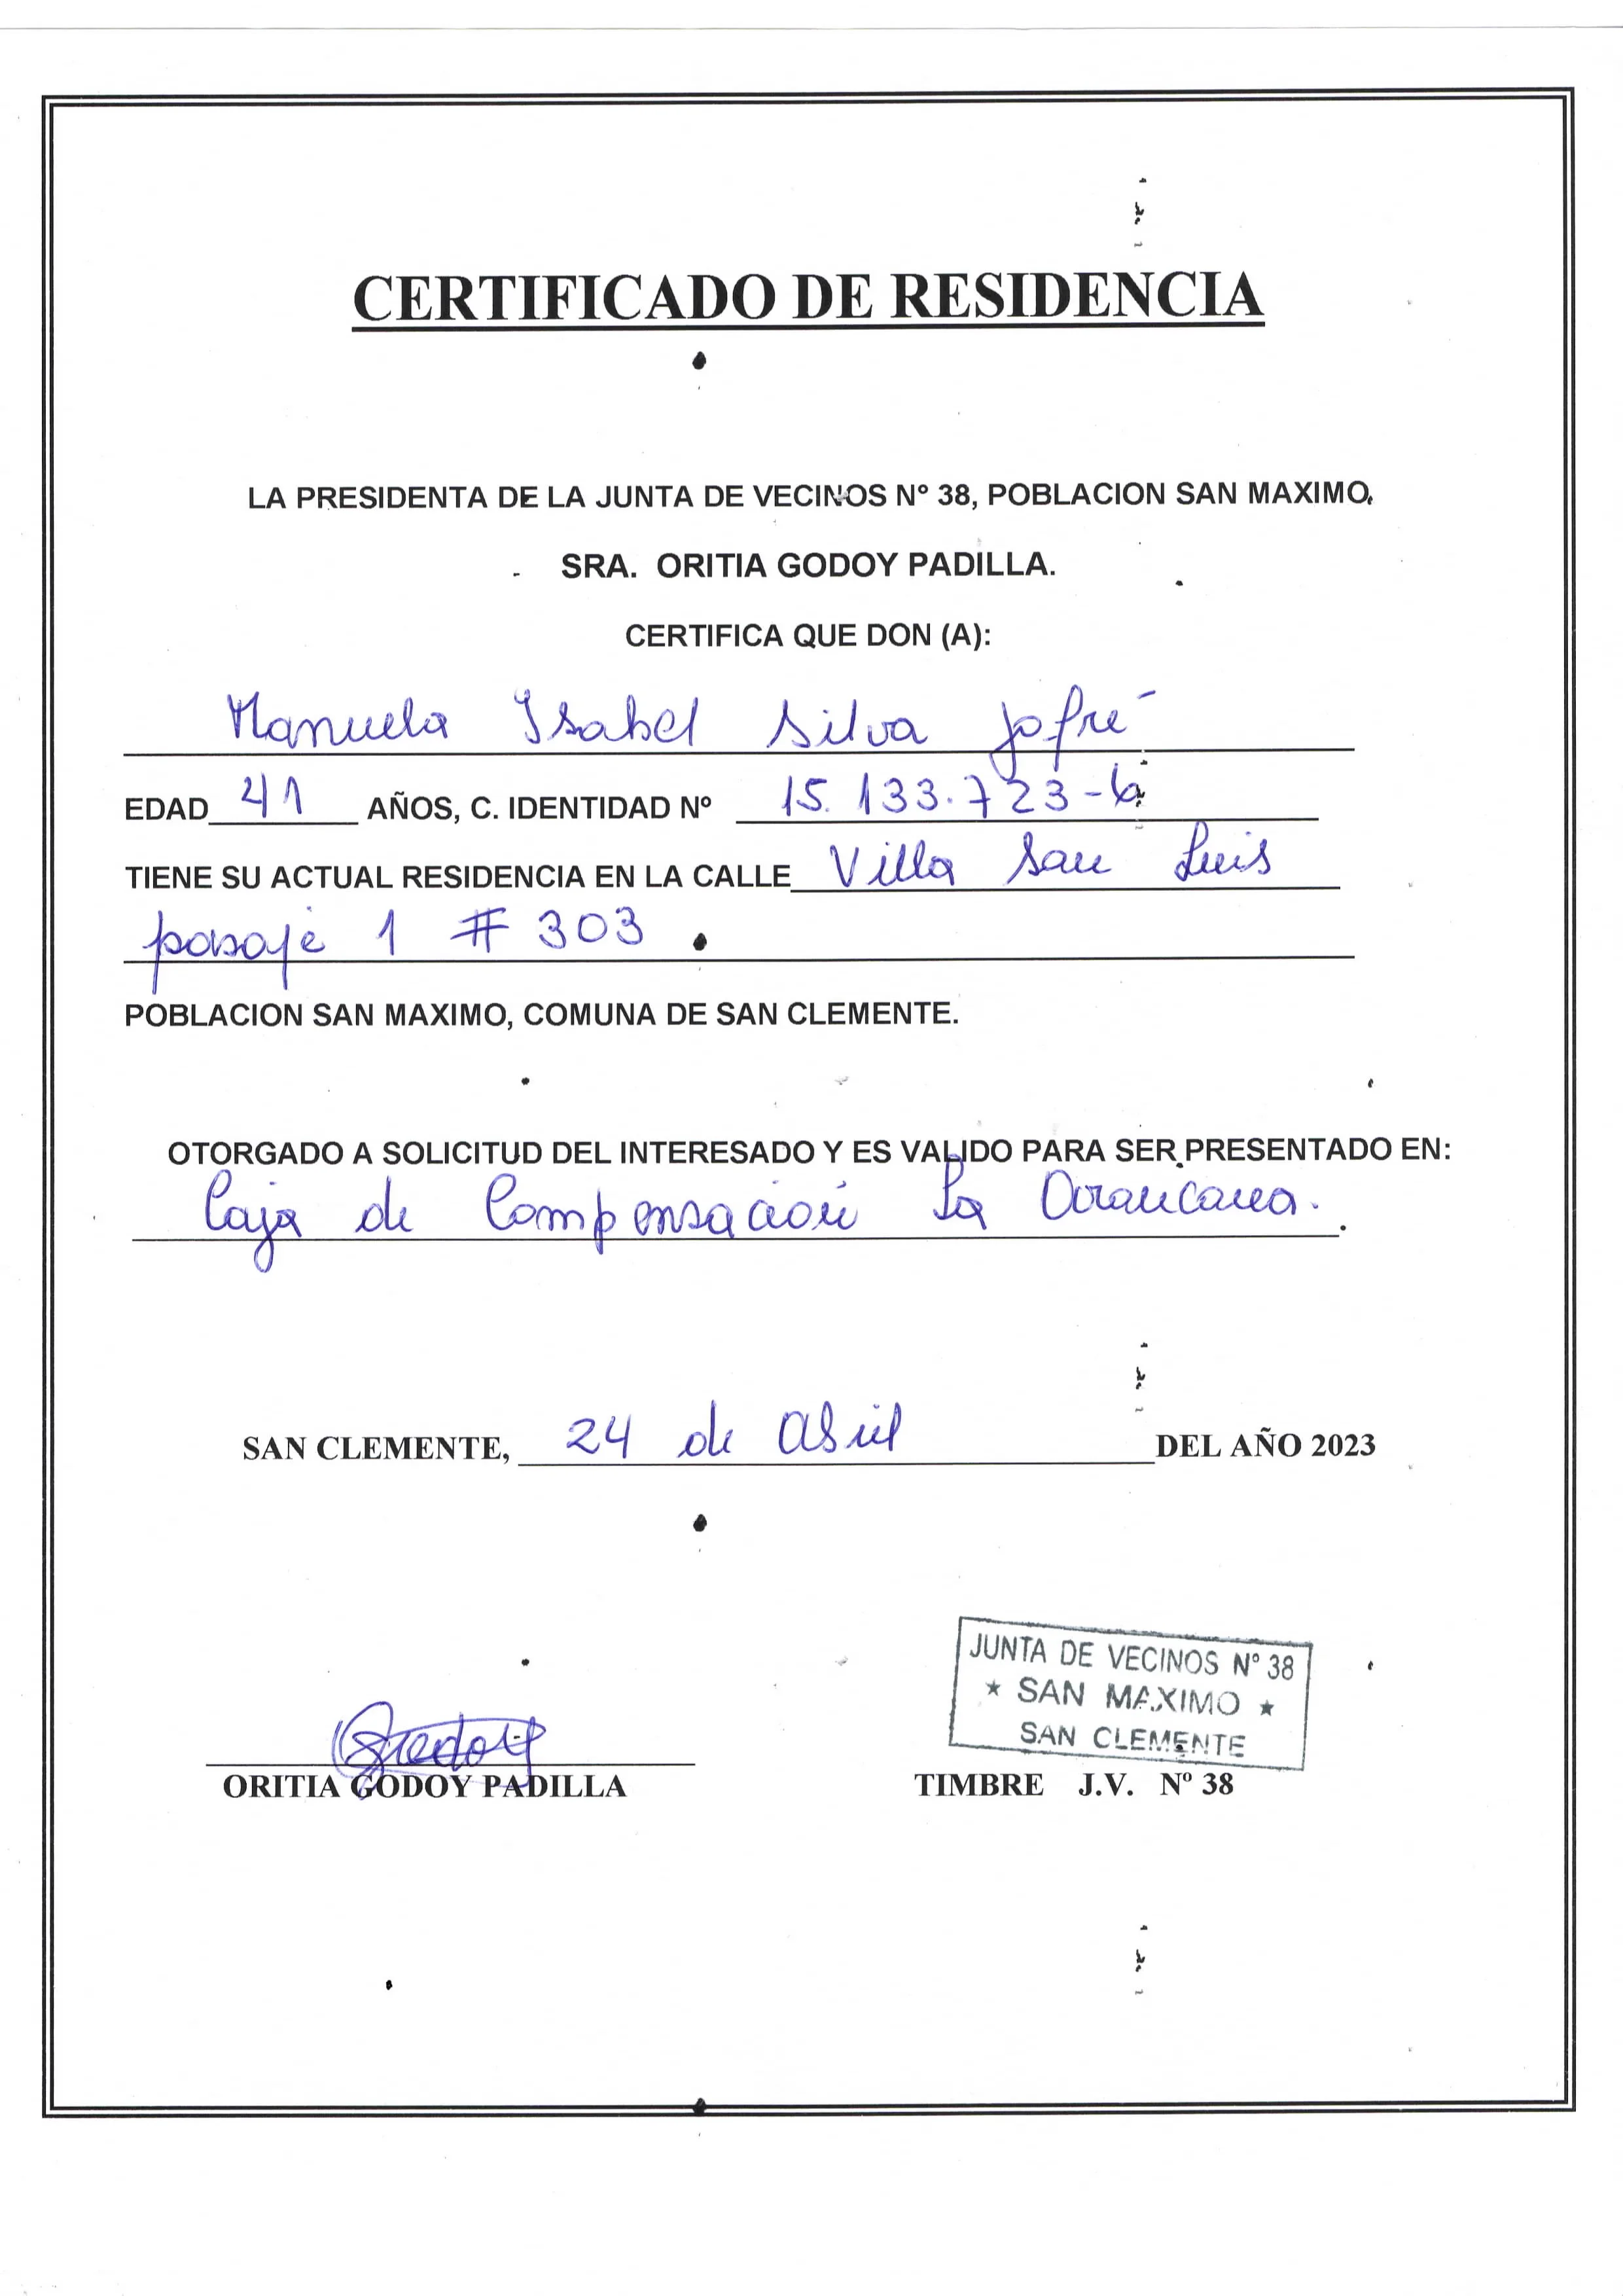 CERTIFICADO DE RESIDENCIA
LA PRESIDENTA DE LA JUNTA DE VECINOS Nº 38, POBLACION SAN MAXIMO,
SRA. ORITIA GODOY PADILLA.
CERTIFICA QUE DON (A):
Manuela Isabel Silva Jofré
EDAD 41 AÑOS, C. IDENTIDAD Nº 15.133.723-6
TIENE SU ACTUAL RESIDENCIA EN LA CALLE Villa San Luis
pasaje 1 # 303
POBLACION SAN MAXIMO, COMUNA DE SAN CLEMENTE.
OTORGADO A SOLICITUD DEL INTERESADO Y ES VALIDO PARA SER PRESENTADO EN:
Caja de Compensación La Araucana.
SAN CLEMENTE, 24 de Abril DEL AÑO 2023
JUNTA DE VECINOS Nº 38
★ SAN MAXIMO ★
SAN CLEMENTE
ORITIA GODOY PADILLA
TIMBRE J.V. Nº 38